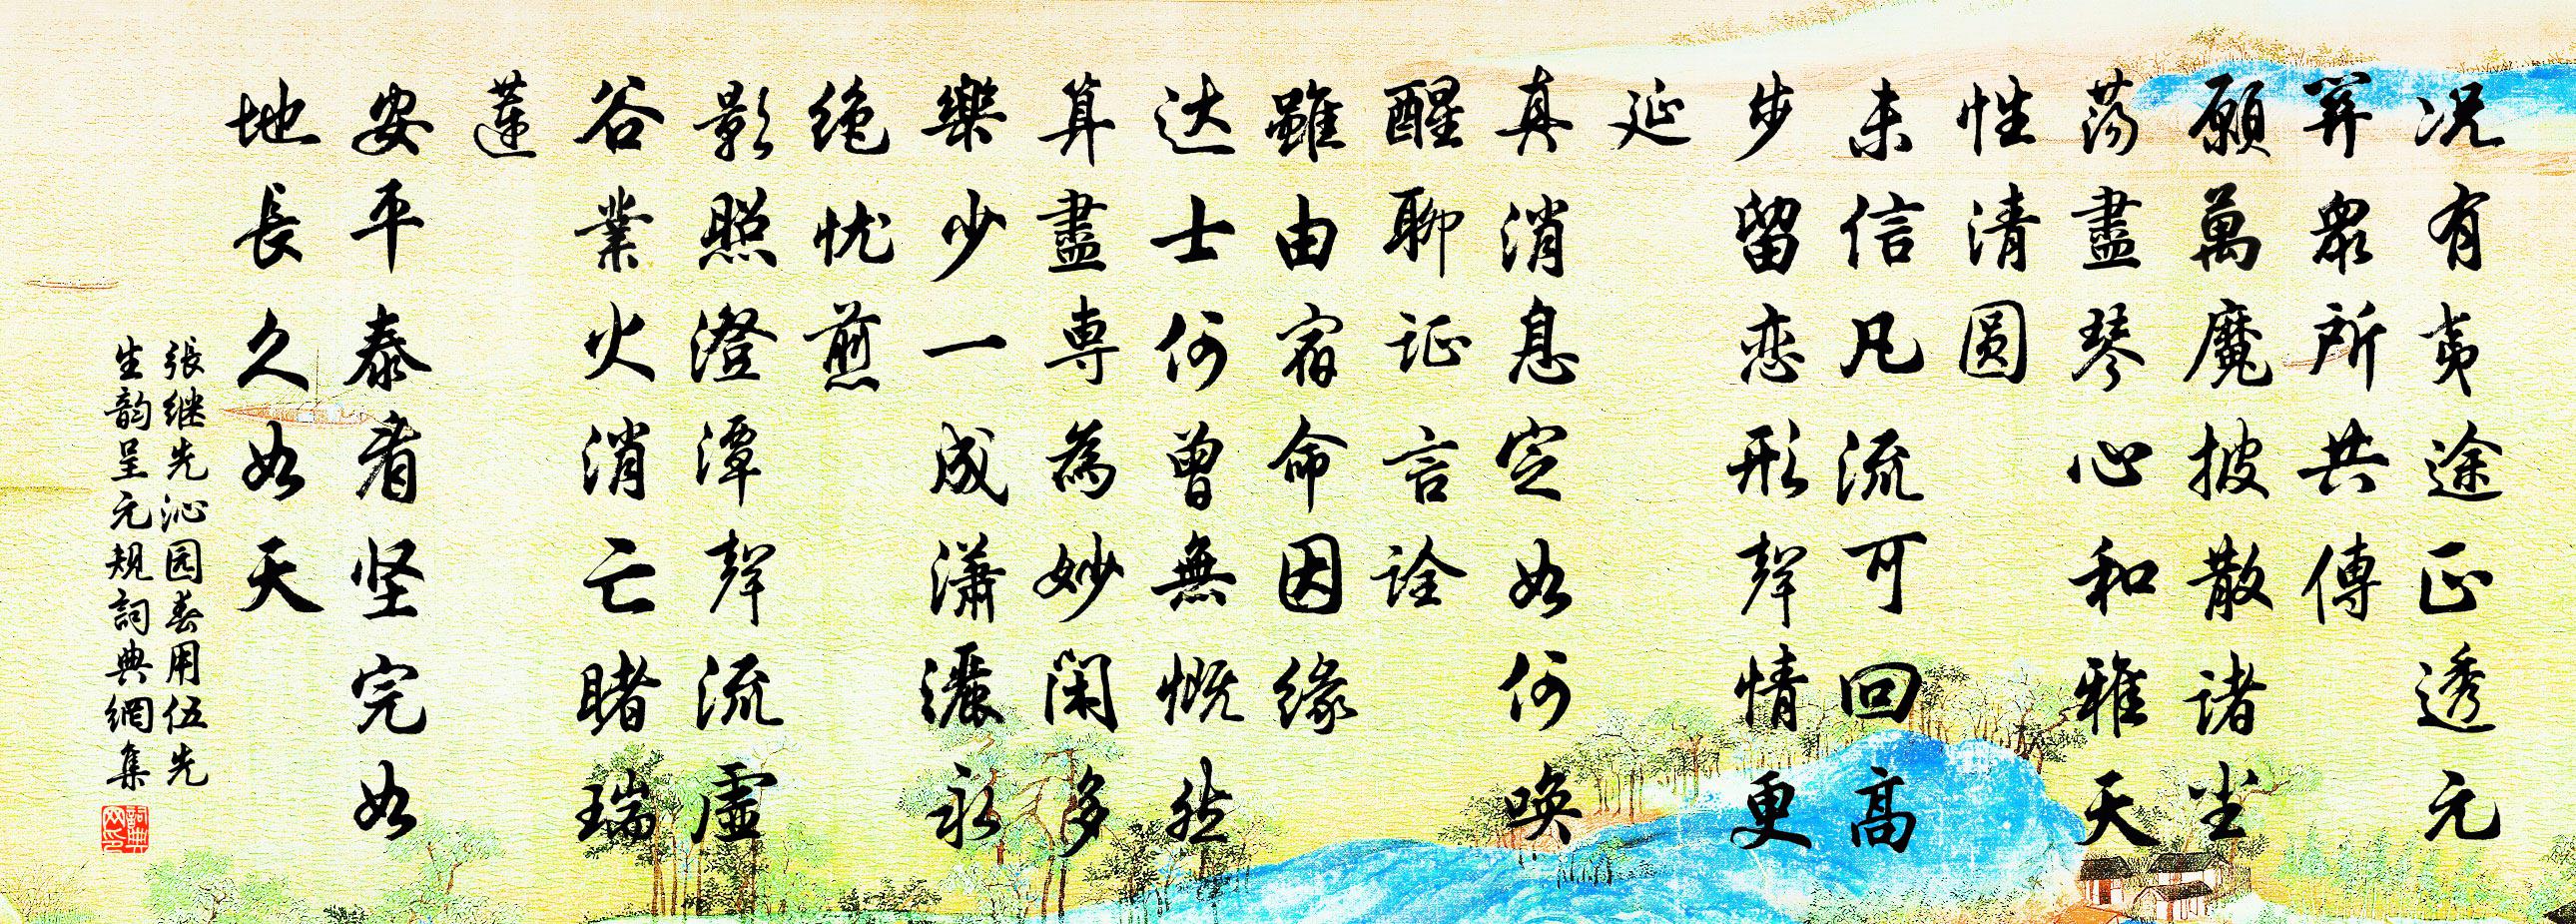 况有夷途正透元
筭衆所共傳
願萬魔披散诸尘
荡盡琴心和雅天
性清圆
未信凡流可回高
步留恋形聲情更
延
真消息定如何唤
醒聊证言诠
雖由宿命因缘
达士何曾無慨然
算盡専為妙閑多
樂少一成潇灑永
绝忧煎
影照澄潭聲流虚
谷業火消亡睹瑞
莲
安平泰看坚完如
地長久如天
張继先沁园春用伍先
生韵呈元规詞典網集